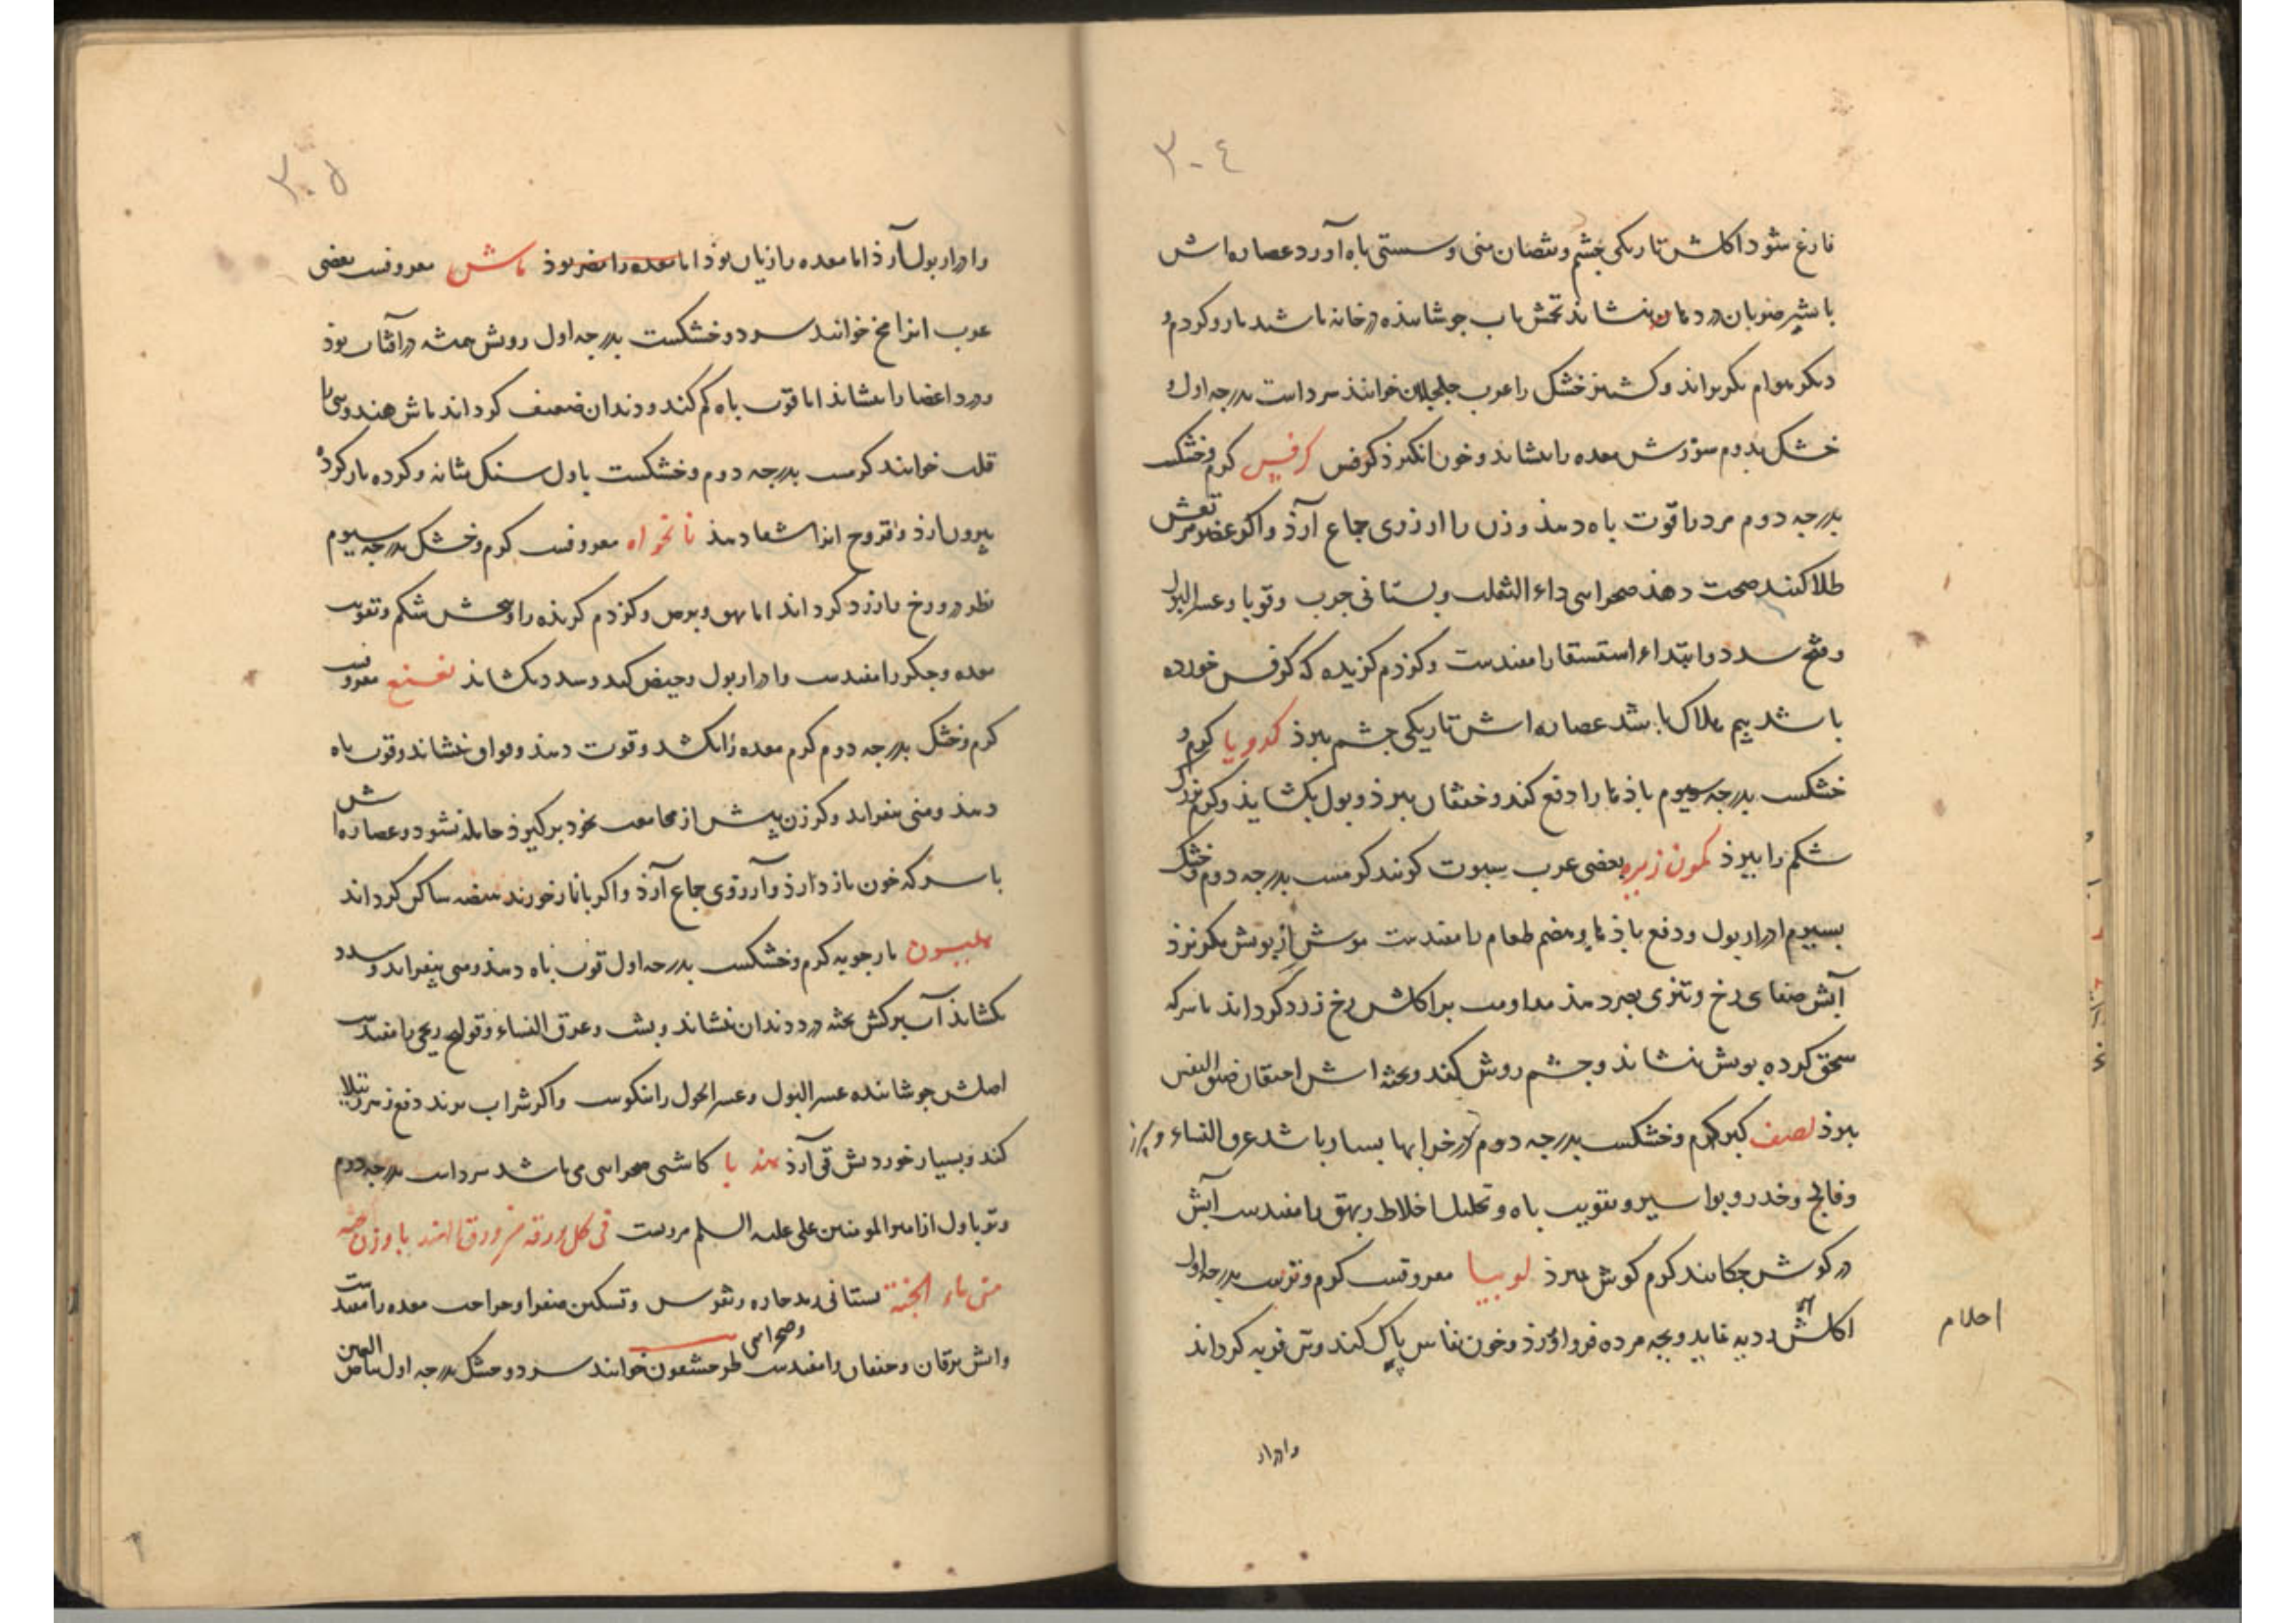 ٣٠٤
فارغ شود اکلش تاریکی چشم و نقصان منی و سستی باه آورد عصاره‌اش
با شیر ضربان درد مان بنشاند تخمش باب جوشانیده در خانه باشند مار و کژدم و
دیکر هوام بکریزاند و کشنیز خشک را عرب جلجلان خوانند سرد است بدرجه اول و
خشک بدوم سوزش معده را بنشاند و خون انکیزذ کرفس کرفس کرم و خشکست
بدرجه دوم مرد را قوت باه دهذ و زن را ارزوی جماع آرذ و اکر عضو مرتعش
طلا کنند صحت دهذ صحرایی داء الثعلب و بستانی جرب و قوبا و عسر البول
و فتح سدد و ابتداء استسقا را مفیدست و کژدم کزیده که کرفس خورده
باشد بیم هلاک باشد عصاره‌اش تاریکی چشم ببرذ کرویا کرم و
خشکست بدرجه سیوم باذها را دفع کند و خفقان ببرذ و بول بکشایذ و کرم بزرک
شکم را ببرذ کمون زیره بعضی عرب سبوت کویند کرمست بدرجه دوم و خشک
بسیوم ادرار بول و دفع باذها و هضم طعام را مفیدست موش از بویش بکریزذ
آبش صفای رخ و تیزی بصر دهذ مداومت بر اکلش رخ زرد کرداند با سرکه
سحق کرده بویش بنشاند و چشم روشن کند و بخته‌اش احتقان ضیق النفس
ببرذ لصف کبر کرم و خشکست بدرجه دوم در خرابها بسیار باشد عرق النساء و سپرز
و فالج و خدر و بواسیر و تقویت باه و تحلیل اخلاط و بهق را مفیدست آبش
در کوش چکانند کرم کوش ببرذ لوبیا معروفست کرم و ترست بدرجه اول
اکلش ردیه نماید و بچه مرده فرواورذ و خون نفاس پاک کند و تن فربه کرداند
احلام
وادرار
٣٠٥
را ادرار بول آرذ اما معده را زیان بوذ اما معده را مضر بوذ ماش معروفست بعضی
عرب انرا مج خوانند سرد و خشکست بدرجه اول رویش بخته در آفتاب بوذ
و درد اعضا را بنشاند اما قوت باه کم کند و دندان ضعیف کرداند ماش هندو سی‌را
قلت خوانند کرمست بدرجه دوم و خشکست باول سنک مثانه و کرده پاره کرده
بیرون ارذ و قروح انرا شفا دهذ نانخواه معروفست کرم و خشک بدرجه سیوم
نظر در و رخ را زرد کرداند اما بهق و برص و کژدم کزیذه را و بخشش شکم و تقویت
معده و جکر را مفیدست و ادرار بول و حیض کند و سدد بکشاید نعنع معروفست
کرم و خشک بدرجه دوم کرم معده را بکشد و قوت دهذ و فواق بنشاند و قوت باه
دهذ و منی بیفزاید و کر زن پیش از مجامعت بخود برکیرذ حامله نشود و عصاره‌اش
با سرکه خون باز دارذ و آرزوی جماع آرذ و اکر با نار خورند هیضه ساکن کرداند
هلیون مارجوبه کرم و خشکست بدرجه اول قوت باه دهذ و منی بیفزاید و سدد
بکشاید آب برکش بخته درد دندان بنشاند و پشت و عرق النساء و قولنج ریحی را مفیدست
اصلش جوشانیده عسر البول و عسر الحبل را نیکوست و اکر شراب برند دفع زهر رتیلا
کند و بسیار خوردنش قی آرذ هندبا کاسنی صحرایی می‌باشد سرد است بدرجه دوم
و تر باول از امیر المومنین علی علیه السلم مرویست فی کل ورقة من ورق الهندبا وزن حبة
من ماء الجنة بستانی رمد حاره و نقرس و تسکین صفرا و حراحت معده را مفیدست
وابش یرقان و خفقان را مفیدست و صحرایی طرحشقون خوانند سرد و خشک بدرجه اول بیاض العین